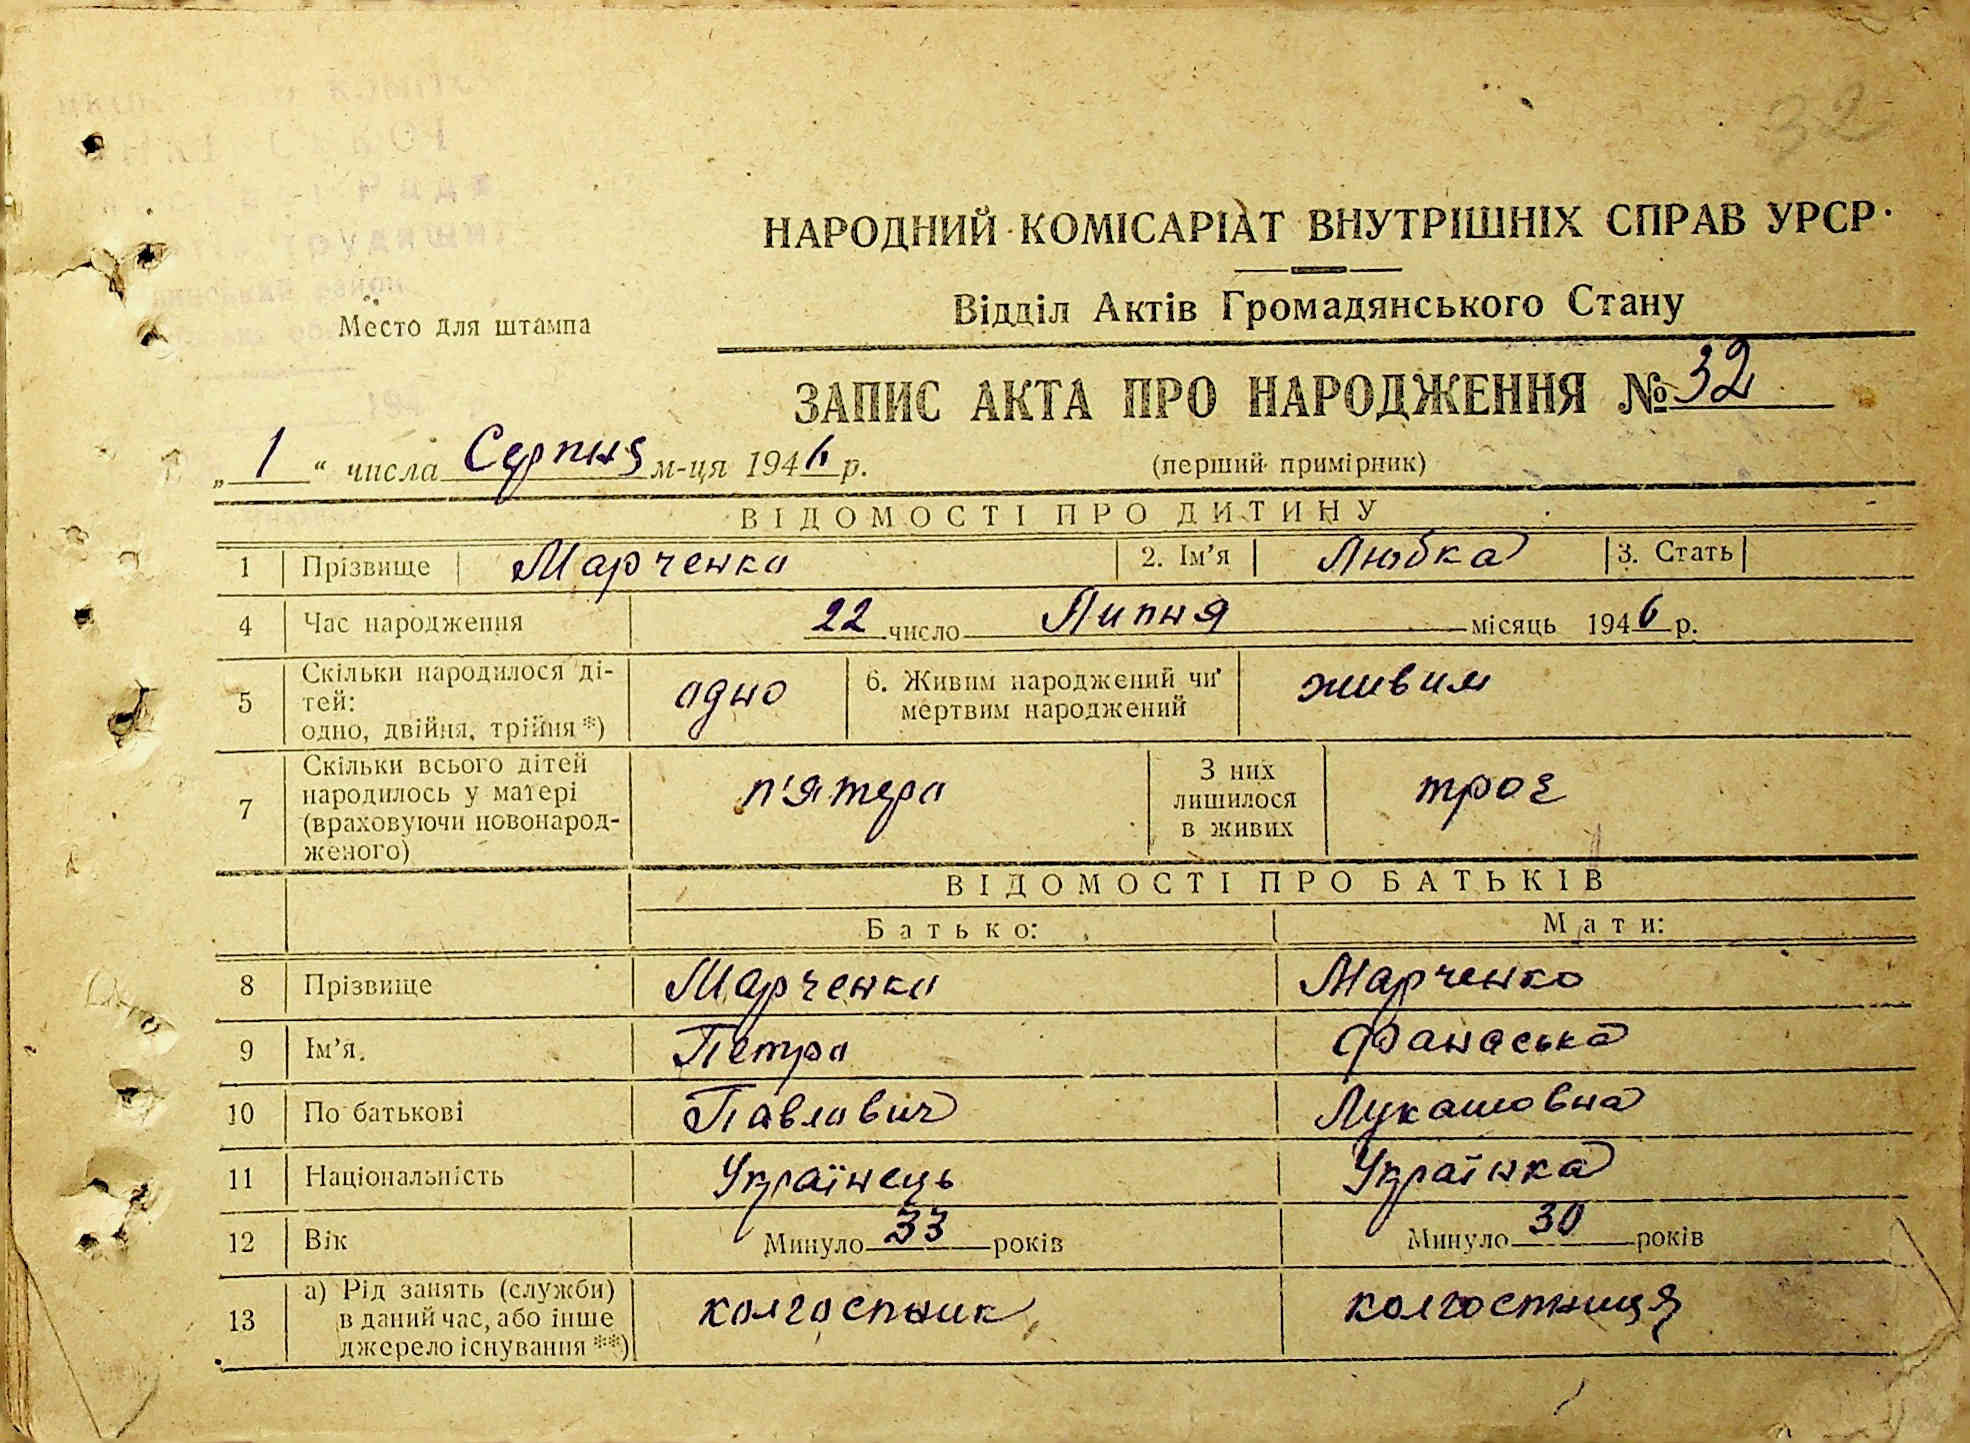 32
НАРОДНИЙ КОМІСАРІАТ ВНУТРІШНІХ СПРАВ УРСР
Відділ Актів Громадянського Стану
Место для штампа
ЗАПИС АКТА ПРО НАРОДЖЕННЯ № 32
„ 1 “ числа Серпня м-ця 1946 р.
(перший примірник)
ВІДОМОСТІ ПРО ДИТИНУ
1 Прізвище Марченко 2. Ім'я Любка 3. Стать
4 Час народження 22 число Липня місяць 1946 р.
5 Скільки народилося ді-
тей:
одно, двійня, трійня *) одно 6. Живим народжений чи
мертвим народжений живим
7 Скільки всього дітей
народилось у матері
(враховуючи новонарод-
женого) п'ятеро З них
лишилося
в живих троє
ВІДОМОСТІ ПРО БАТЬКІВ
Батько: Мати:
8 Прізвище Марченко Марченко
9 Ім'я. Петро Фанаська
10 По батькові Павлович Лукашовна
11 Національність Українець Українка
12 Вік Минуло 33 років Минуло 30 років
13 а) Рід занять (служби)
в даний час, або інше
джерело існування **) колгоспник колгоспниця